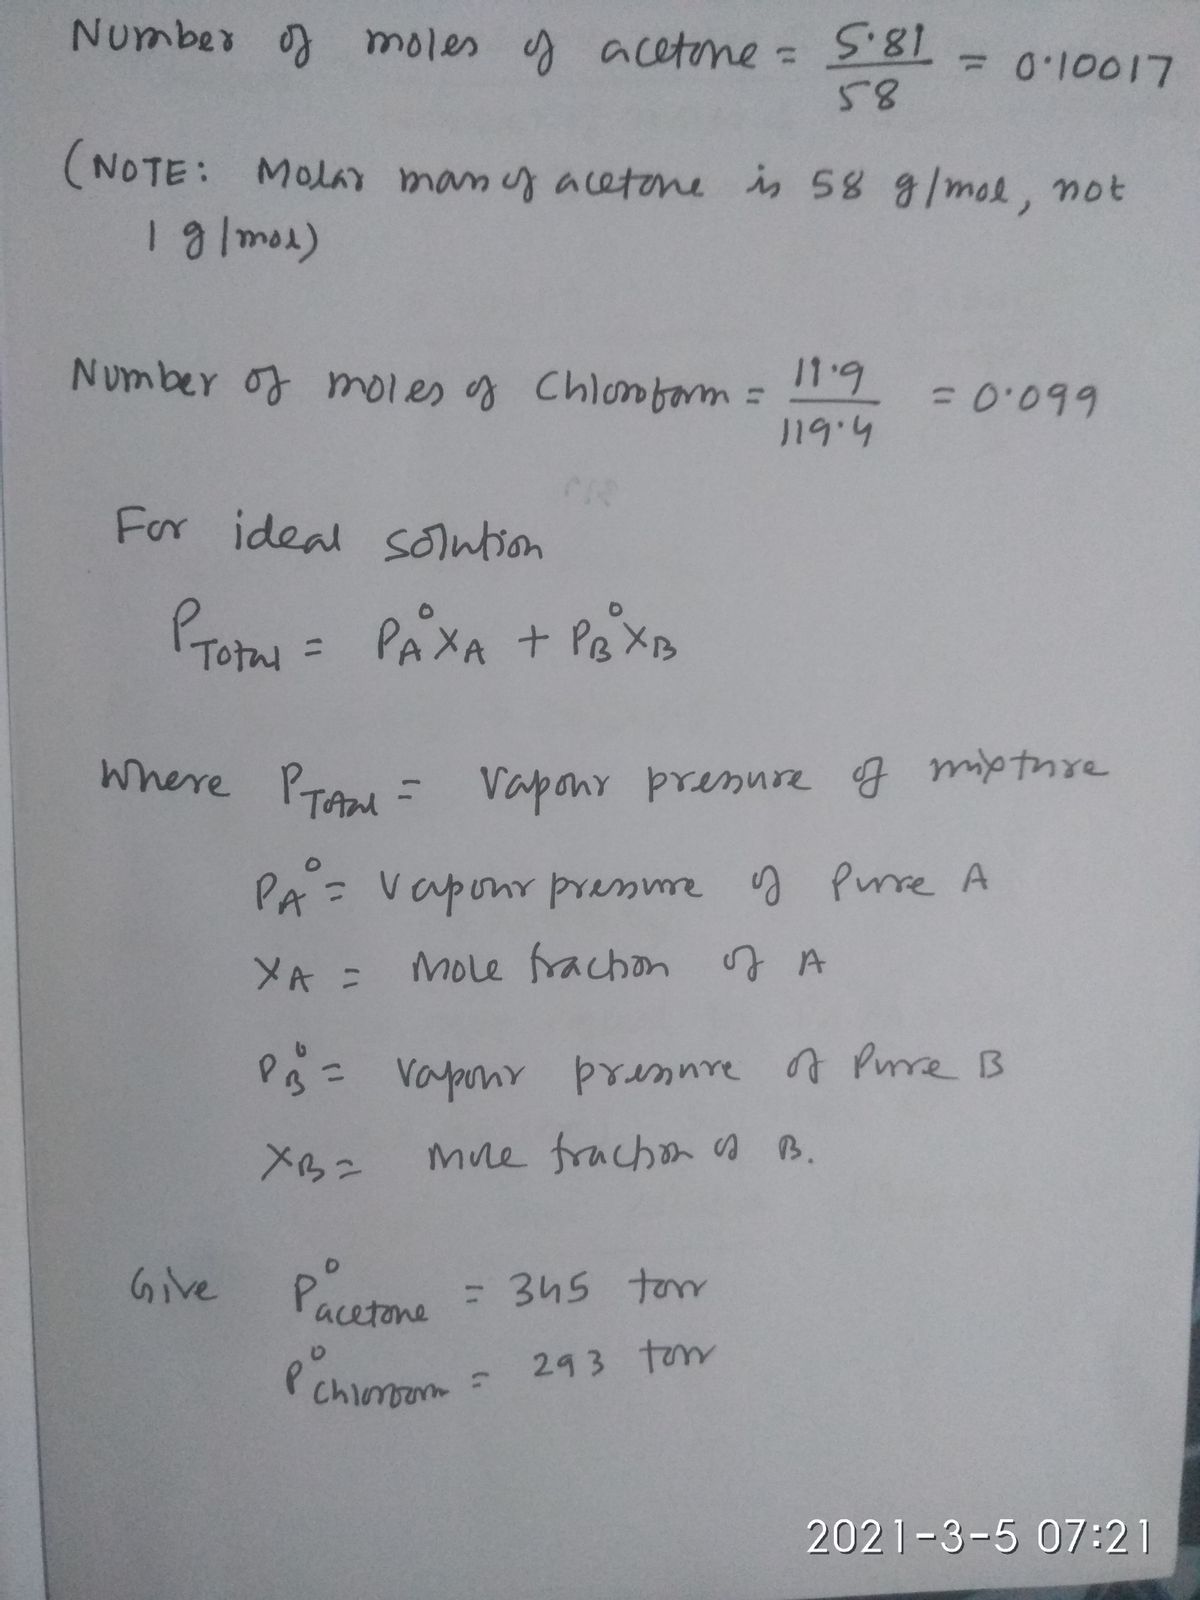 Number of moles of acetone = 5.81/58 = 0.10017
(NOTE: Molar mass of acetone is 58 g/mol, not
1 g/mol)
Number of moles of Chloroform = 11.9/119.4 = 0.099
For ideal solution
P_Total = P_A° X_A + P_B° X_B
Where P_Total = Vapour pressure of mixture
P_A° = Vapour pressure of Pure A
X_A = Mole fraction of A
P_B° = Vapour pressure of Pure B
X_B = Mole fraction of B.
Give P°_acetone = 345 torr
P°_Chloroform = 293 torr
2021-3-5 07:21